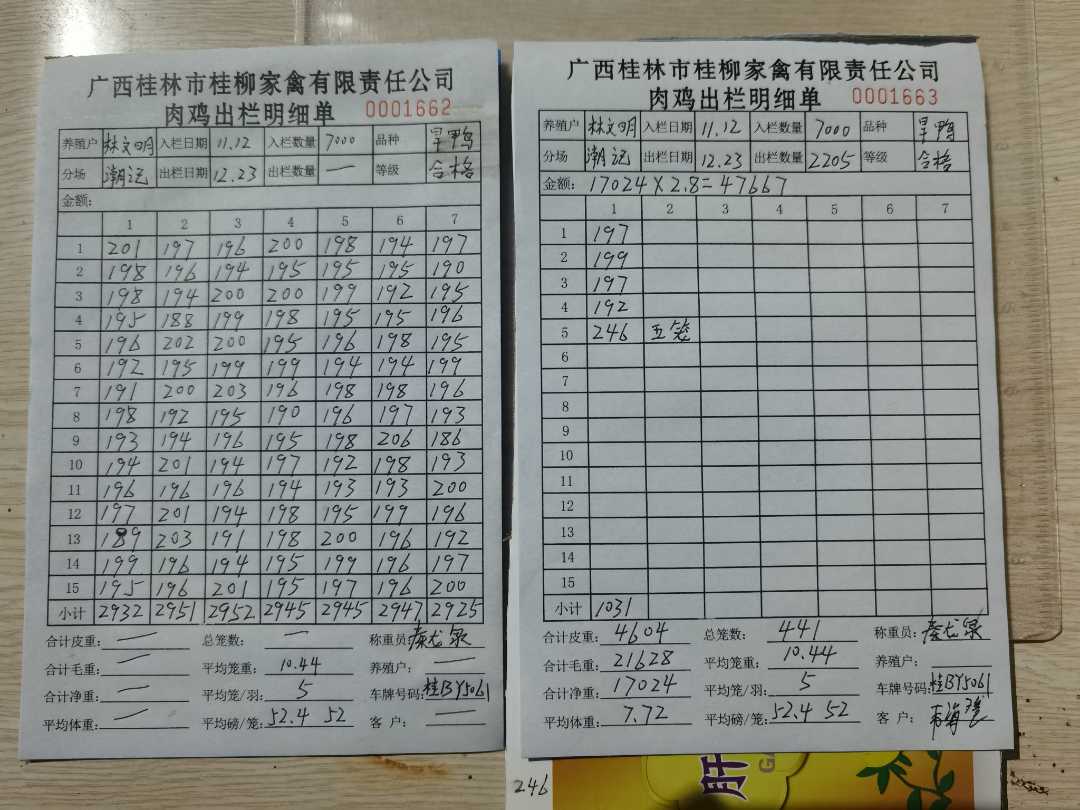 广西桂林市桂柳家禽有限责任公司
肉鸡出栏明细单 0001662
养殖户 林文明 入栏日期 11.12 入栏数量 7000 品种 旱鸭
分场 潮记 出栏日期 12.23 出栏数量 一 等级 合格
金额:
1 2 3 4 5 6 7
1 201 197 196 200 198 194 197
2 198 196 194 195 195 195 190
3 198 194 200 200 199 192 195
4 195 188 199 198 195 195 196
5 196 202 200 195 196 198 195
6 192 195 199 199 194 194 199
7 191 200 203 196 198 198 196
8 198 192 195 190 196 197 193
9 193 194 196 195 198 206 186
10 194 201 194 197 192 198 193
11 196 196 196 194 193 193 200
12 197 201 194 198 195 199 196
13 189 203 191 198 200 196 192
14 199 196 194 195 199 196 197
15 195 196 201 195 197 196 200
小计 2932 2951 2952 2945 2945 2947 2925
合计皮重: 一 总笼数: 一 称重员: 秦龙泉
合计毛重: 一 平均笼重: 10.44 养殖户: 一
合计净重: 一 平均笼/羽: 5 车牌号码: 桂BY5061
平均体重: 一 平均磅/笼: 52.4 52 客户: 一
广西桂林市桂柳家禽有限责任公司
肉鸡出栏明细单 0001663
养殖户 林文明 入栏日期 11.12 入栏数量 7000 品种 旱鸭
分场 潮记 出栏日期 12.23 出栏数量 2205 等级 合格
金额: 17024×2.8=47667
1 2 3 4 5 6 7
1 197
2 199
3 197
4 192
5 246 五笼
6
7
8
9
10
11
12
13
14
15
小计 1031
合计皮重: 4604 总笼数: 441 称重员: 秦龙泉
合计毛重: 21628 平均笼重: 10.44 养殖户:
合计净重: 17024 平均笼/羽: 5 车牌号码: 桂BY5061
平均体重: 7.72 平均磅/笼: 52.4 52 客户:
246
肝
GA